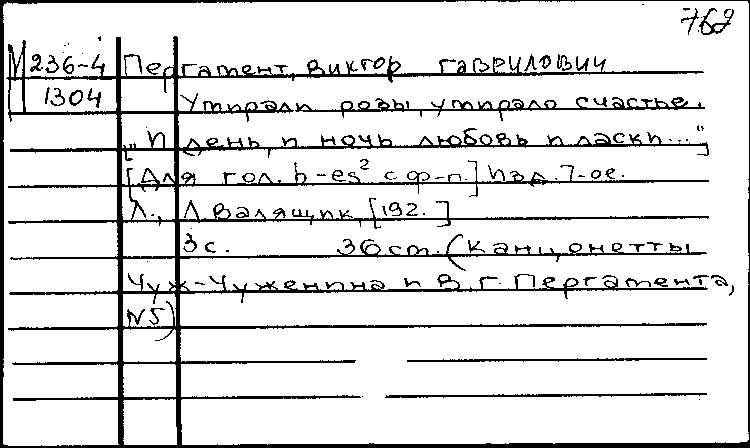 762
М 236-4 Пергамент, Виктор Гаврилович
1304 Умирали розы, умирало счастье.
[„И день, и ночь любовь и ласки..."]
[Для гол. h-es² с ф-п.] Изд. 7-ое.
Л., Л. Валящик, [192. ]
3 с. 36 cm. (Канцонетты
Чуж-Чуженина и В. Г. Пергамента,
N5)